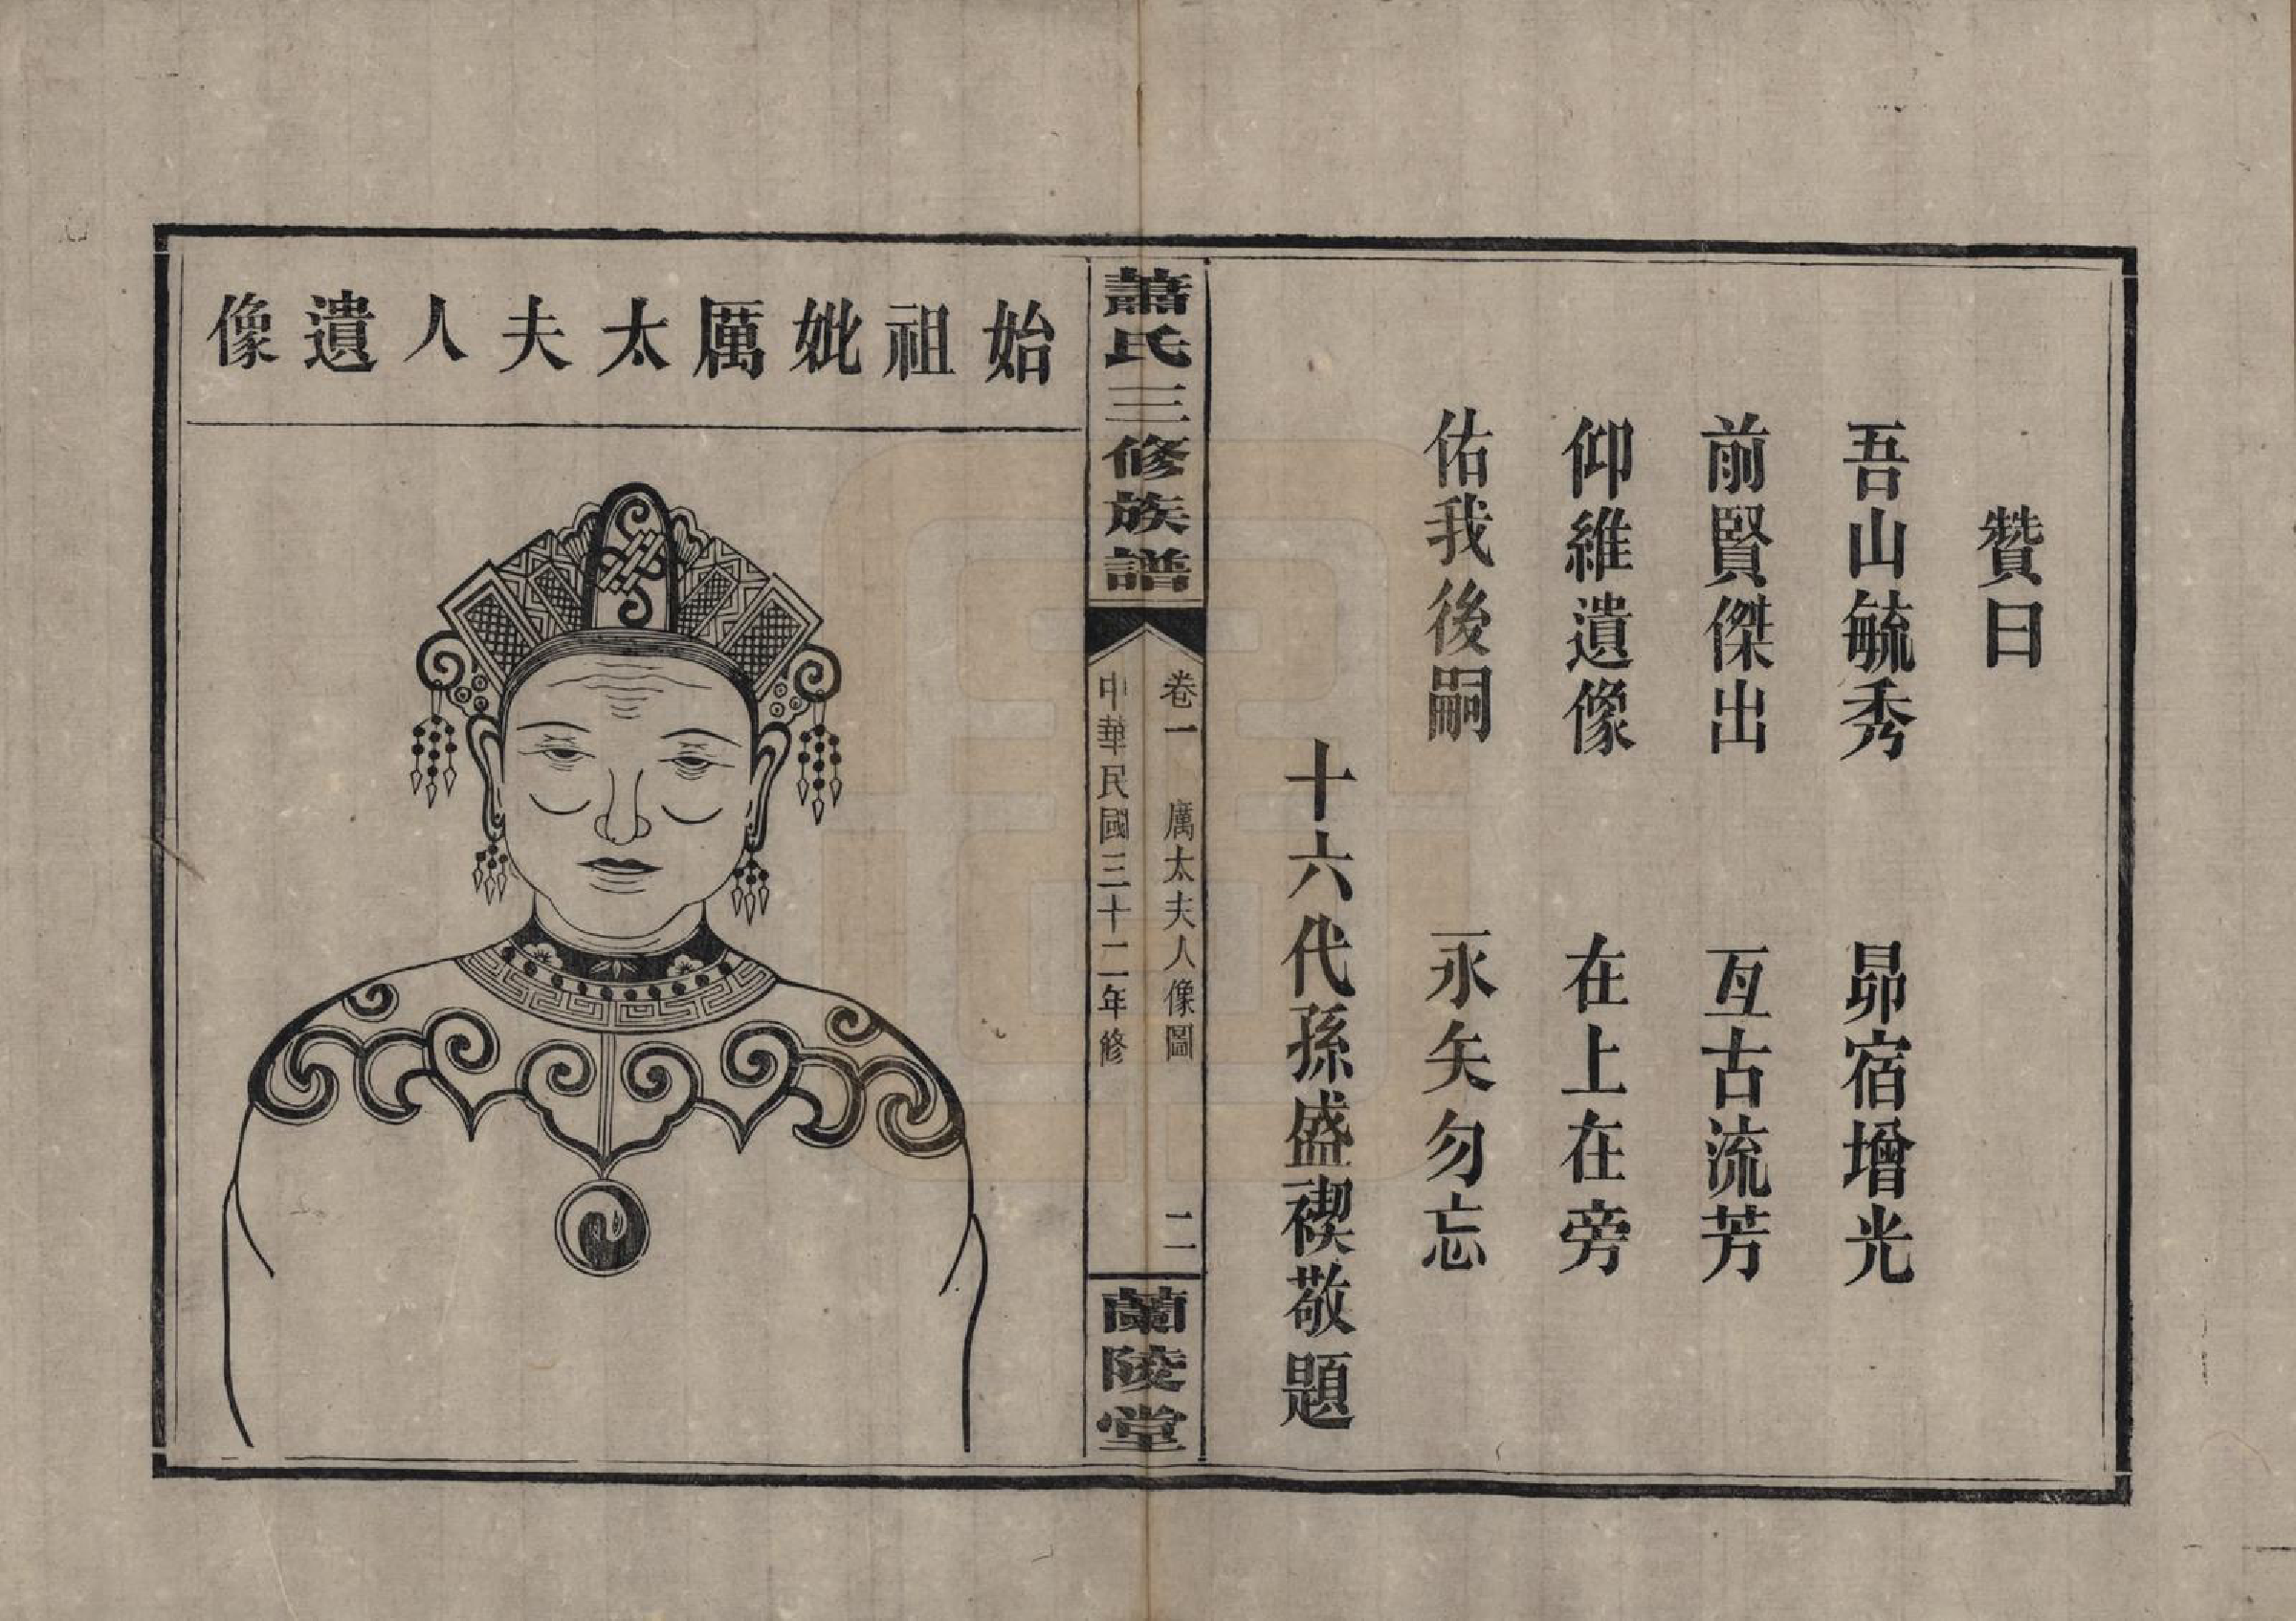 贊曰
吾山毓秀 昴宿增光
前賢傑出 亙古流芳
仰維遺像 在上在旁
佑我後嗣 永矢勿忘
十六代孫盛禊敬題
蕭氏三修族譜
卷一 厲太夫人像圖 二
中華民國三十二年修
蘭陵堂
始祖妣厲太夫人遺像